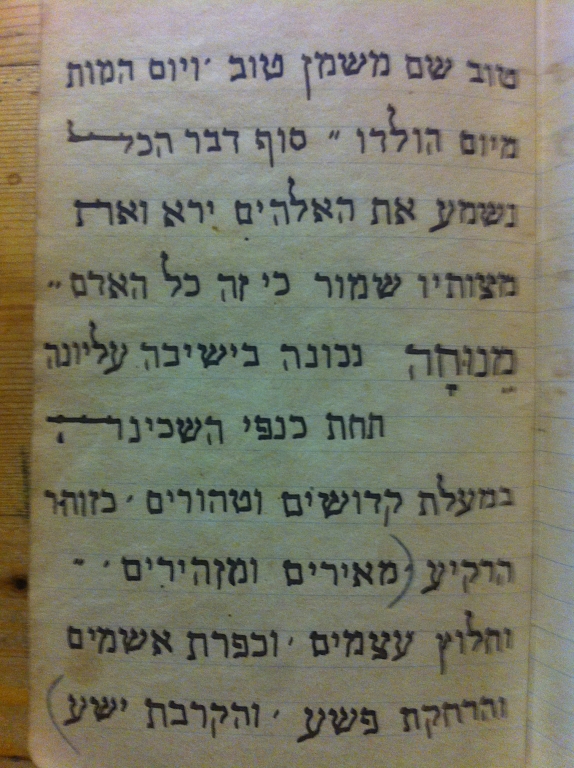 טוב שם משמן טוב ׳ ויום המות
מיום הולדו ״ סוף דבר הכל
נשמע את האלהים ירא ואת
מצותיו שמור כי זה כל האדם ״
מְנוּחָה נכונה בישיבה עליונה
תחת כנפי השכינה
במעלת קדושים וטהורים ׳ כזוהר
הרקיע (מאירים ומזהירים ׳ ״
וחלוץ עצמים ׳ וכפרת אשמים
והרחקת פשע ׳ והקרבת ישע)